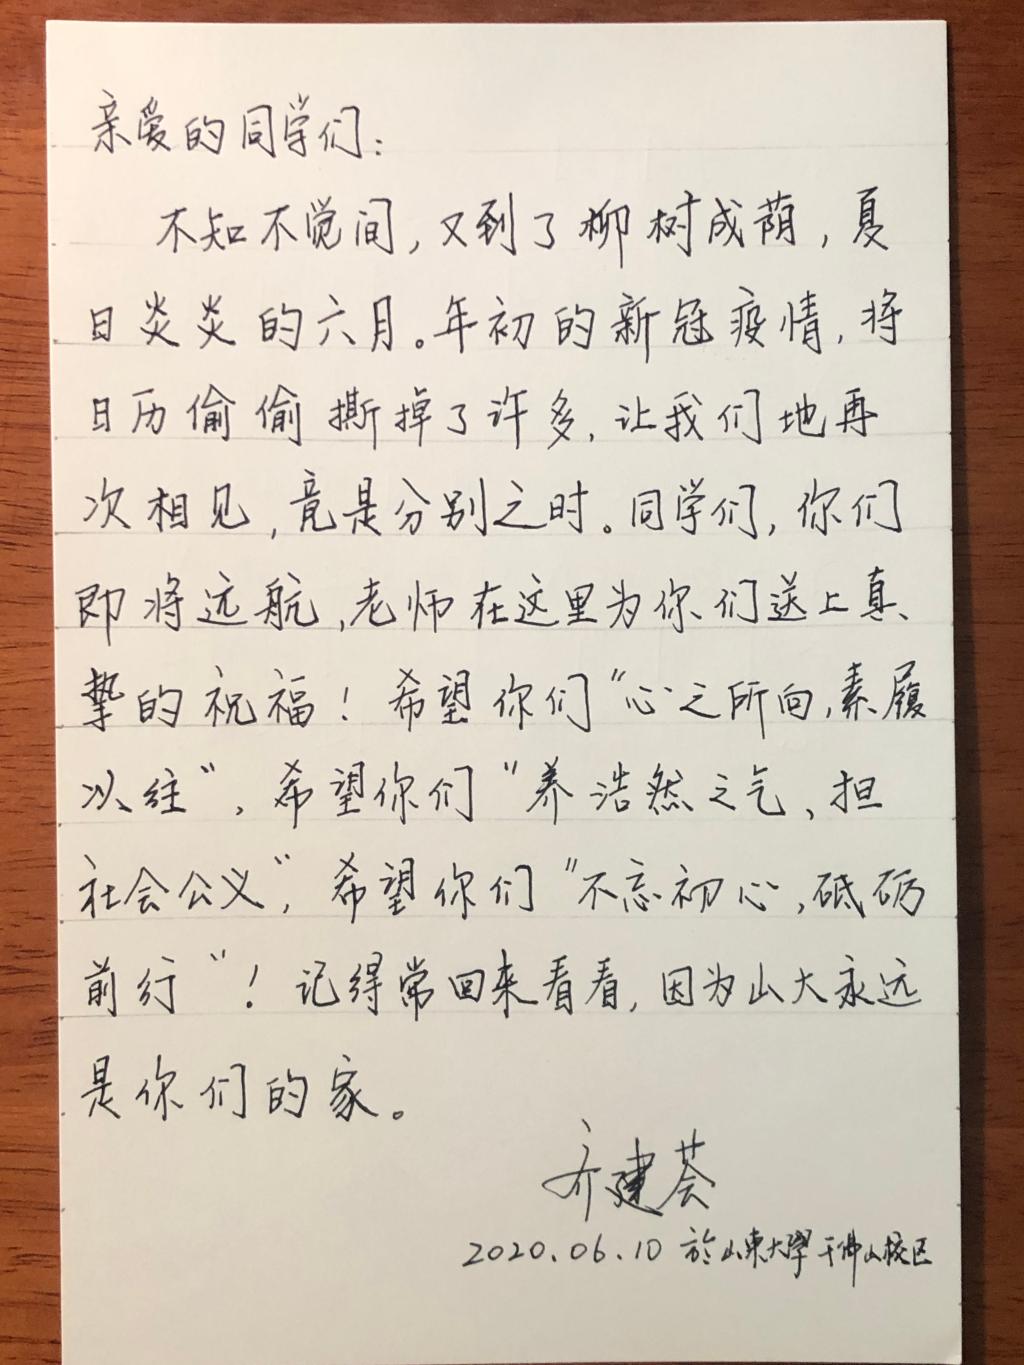 亲爱的同学们：
不知不觉间，又到了柳树成荫，夏
日炎炎的六月。年初的新冠疫情，将
日历偷偷撕掉了许多，让我们地再
次相见，竟是分别之时。同学们，你们
即将远航，老师在这里为你们送上真
挚的祝福！希望你们“心之所向，素履
以往”，希望你们“养浩然之气、担
社会公义”，希望你们“不忘初心，砥砺
前行”！记得常回来看看，因为山大永远
是你们的家。
齐建荟
2020.06.10 於山东大學千佛山校区